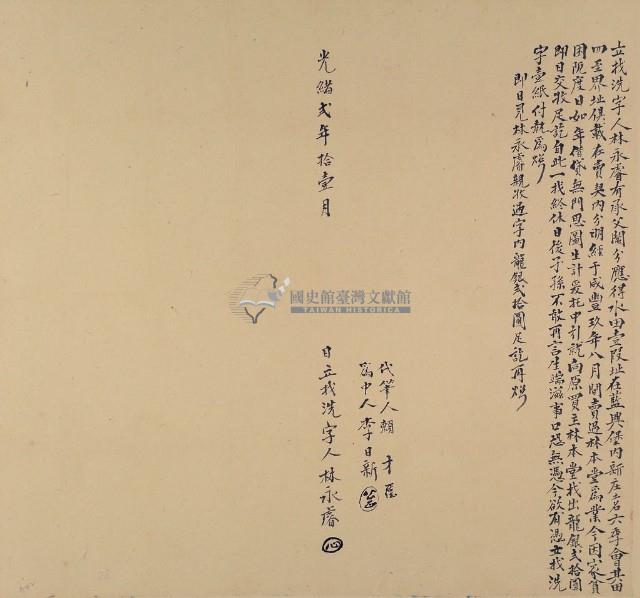 立找洗字人林永睿有承父鬮分應得水田壹段址在藍興堡內新庄土名六季會其田
四至界址俱載在賣契內分明經于咸豐玖年八月間賣過林本堂為業今因家貧
困阨度日如年借貸無門思圖生計爰托中引就向原買主林本堂找出龍銀弍拾圓
即日交收足訖自此一找終休日後子孫不敢再言生端滋事口恐無憑今欲有憑立找洗
字壹紙付執為炤
即日見林永睿親收過字內龍銀弍拾圓足訖再炤
代筆人賴 才
為中人李日新
光緒弍年拾壹月
日立找洗字人林永睿
國史館臺灣文獻館
TAIWAN HISTORICA